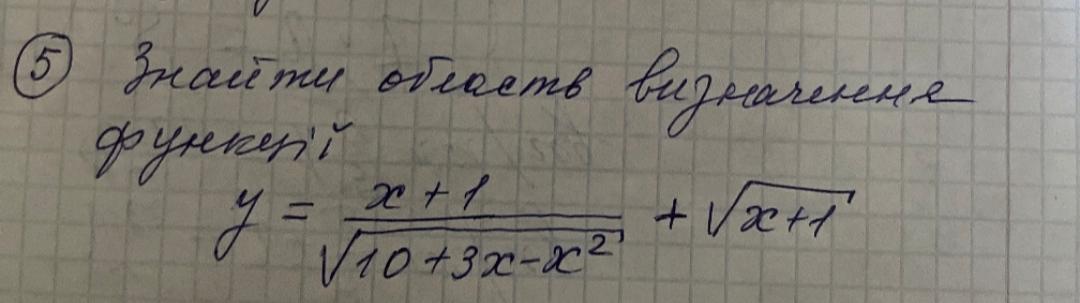 5 Знайти область визначення
функції
y = \frac{x+1}{\sqrt{10+3x-x^2}} + \sqrt{x+1}